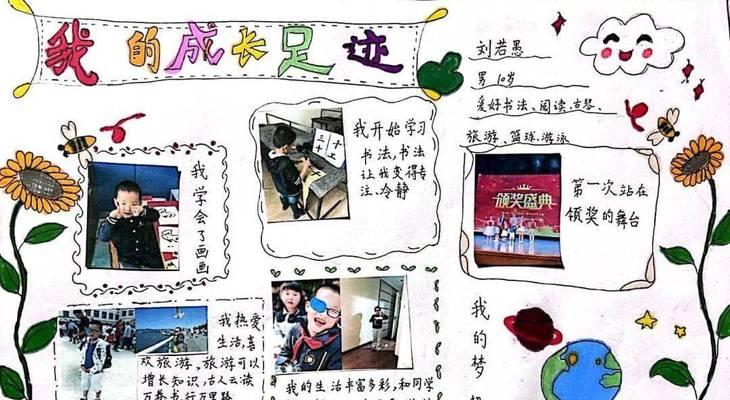 我的成长足迹
刘若愚
男 10岁
爱好书法、阅读、古琴、
旅游、篮球、游泳
我学会了画画
我开始学习
书法,书法
让我变得专
注、冷静
颁奖盛典
第一次站在
领奖的舞台
我热爱
生活,喜
欢旅游,旅游可以
增长知识,古人云读
万卷书,行万里路
我的生活丰富多彩,和同学
我的梦想